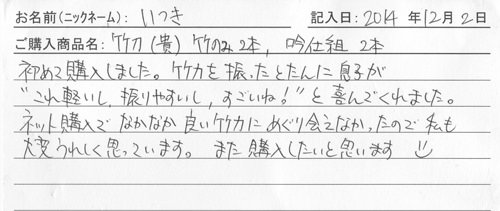 お名前(ニックネーム): いつき 記入日: 2014 年12月2日
ご購入商品名: 竹刀(貴)竹のみ2本, 吟仕組 2本
初めて購入しました。竹刀を振ったとたんに息子が
"これ軽いし、振りやすいし、すごいね!"と喜んでくれました。
ネット購入でなかなか良い竹刀にめぐり会えなかったので私も
大変うれしく思っています。また購入したいと思います